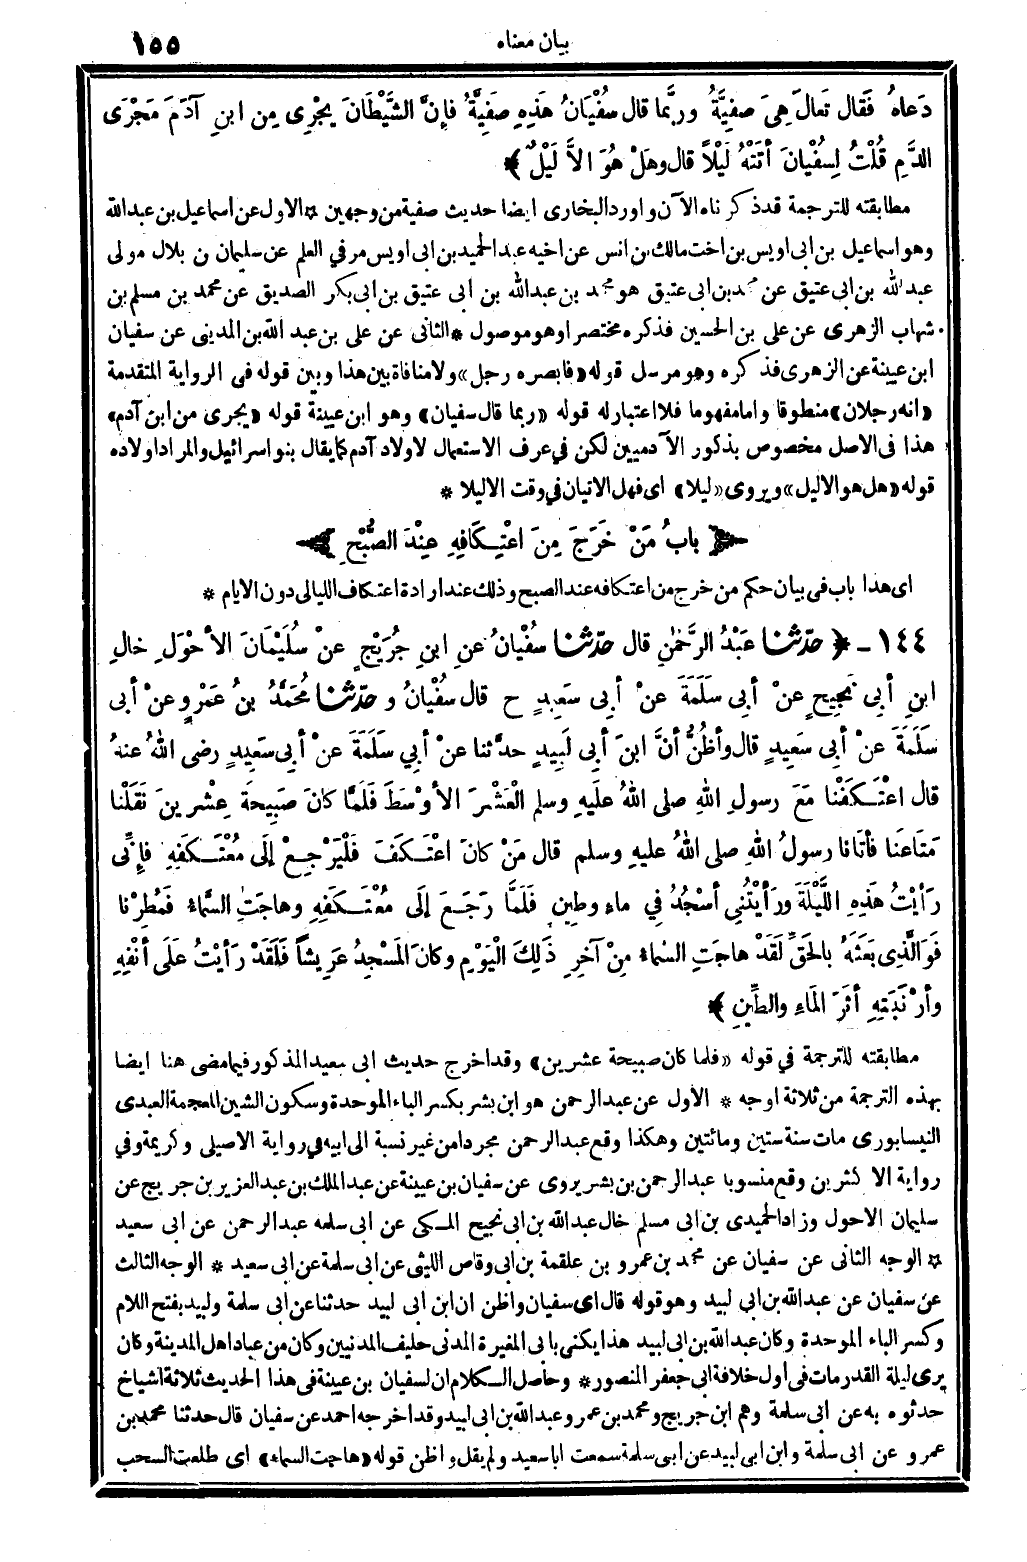 بيان معناه ١٥٥
دَعاهُ فَقال تَعالَ هِيَ صفيَّةُ وربَّما قال سُفْيانُ هَذِهِ صَفِيَّةُ فإِنَّ الشَّيْطَانَ يجْرِى مِن ابنِ آدَمَ مَجْرَى
الدَّمِ قُلْتُ لِسُفْيانَ أتَتْهُ لَيْلاً قال وهَلْ هُوَ الاَّ لَيْلٌ ﴾
مطابقته للترجمة قد ذكرناه الآن واورد البخارى ايضا حديث صفية من وجهين * الاول عن اسماعيل بن عبد الله
وهو اسماعيل بن ابى اويس بن اخت مالك بن انس عن اخيه عبد الحميد بن ابى اويس مر في العلم عن سليمان بن بلال مولى
عبد الله بن ابى عتيق عن محمد بن ابى عتيق هو محمد بن عبد الله بن ابى عتيق بن ابى بكر الصديق عن محمد بن مسلم بن
شهاب الزهرى عن على بن الحسين فذكره مختصرا وهو موصول * الثانى عن على بن عبد الله بن المدينى عن سفيان
ابن عيينة عن الزهرى فذكره وهو مرسل قوله «فابصره رجل» ولا منافاة بين هذا وبين قوله فى الرواية المتقدمة
«انه رجلان» منطوقا واما مفهوما فلا اعتبار له قوله «ربما قال سفيان» وهو ابن عيينة قوله «يجرى من ابن آدم»
هذا فى الاصل مخصوص بذكور الآدميين لكن في عرف الاستعمال لاولاد آدم كما يقال بنو اسرائيل والمراد اولاده
قوله «هل هو الا ليل» ويروى «ليلا» اى فهل الاتيان في وقت الا ليلا *
﴿ بابُ مَنْ خَرَجَ مِنَ اعْتِكَافِهِ عِنْدَ الصُّبْحِ ﴾
اى هذا باب فى بيان حكم من خرج من اعتكافه عند الصبح وذلك عند ارادة اعتكاف الليالى دون الايام *
١٤٤ ـ ﴿ حدّثنا عَبْدُ الرَّحْمٰنِ قال حدّثنا سفْيانُ عنِ ابنِ جُرَيْجٍ عنْ سُلَيْمَانَ الأحْوَلِ خالِ
ابنِ أبِى نَجِيحٍ عنْ أبِى سَلَمَةَ عنْ أبِى سَعِيدٍ ح قال سُفْيانُ وحدّثنا مُحَمَّدُ بنُ عَمْرٍو عنْ أبى
سَلَمَةَ عنْ أبى سَعِيدٍ قال وأظُنُّ أنَّ ابنَ أبى لَبِيدٍ حدَّثنا عنْ أبِي سَلَمَةَ عنْ أبِى سَعِيدٍ رضى اللهُ عنهُ
قال اعْتَكَفْنا مَعَ رسولِ اللهِ صلى اللهُ علَيهِ وسلم الْعَشْرَ الأوْسَطَ فَلَمَّا كانَ صَبِيحَةَ عِشْرِينَ نَقَلْنا
مَتَاعَنا فأتانا رسولُ اللهِ صلى اللهُ عليهِ وسلم قال مَنْ كانَ اعْتَكَفَ فَلْيَرْجِعْ إلَى مُعْتَكَفِهِ فإِنِّى
رَأيْتُ هَذِهِ اللَّيْلَةَ ورَأيْتُنِي أسْجُدُ في ماءٍ وطِينٍ فَلَمَّا رَجَعَ إلَى مُعْتَكَفِهِ وهاجَتِ السَّماءُ فَمُطِرْنا
فَوَالَّذِى بَعَثَهُ بالحَقِّ لَقَدْ هاجَتِ السَّماءُ مِنْ آخِرِ ذَلِكَ الْيَوْمِ وكانَ المَسْجِدُ عَرِيشاً فَلَقَدْ رَأيْتُ عَلَى أنْفِهِ
وأرْنَبَتِهِ أثَرَ المَاءِ والطِّينِ ﴾
مطابقته للترجمة في قوله «فلما كان صبيحة عشرين» وقد اخرج حديث ابى سعيد المذكور فيما مضى هنا ايضا
بهذه الترجمة من ثلاثة اوجه * الأول عن عبد الرحمن هو ابن بشر بكسر الباء الموحدة وسكون الشين المعجمة العبدى
النيسابورى مات سنة ستين ومائتين وهكذا وقع عبد الرحمن مجردا من غير نسبة الى ابيه في رواية الاصيلى وكريمة وفي
رواية الاكثرين وقع منسوبا عبد الرحمن بن بشر يروى عن سفيان بن عيينة عن عبد الملك بن عبد العزيز بن جريج عن
سليمان الاحول وزاد الحميدى بن ابى مسلم خال عبد الله بن ابى نجيح المكى عن ابى سلمه عبد الرحمن عن ابى سعيد
* الوجه الثانى عن سفيان عن محمد بن عمرو بن علقمة بن ابى وقاص الليثى عن ابى سلمة عن ابى سعيد * الوجه الثالث
عن سفيان عن عبد الله بن ابي لبيد وهو قوله قال اى سفيان واظن ان ابن ابى لبيد حدثنا عن ابى سلمة ولبيد بفتح اللام
وكسر الباء الموحدة وكان عبد الله بن ابى لبيد هذا يكنى بابى المغيرة المدنى حليف المدنيين وكان من عباد اهل المدينة وكان
يرى ليلة القدر مات فى أول خلافة ابى جعفر المنصور * وحاصل الكلام ان لسفيان بن عيينة فى هذا الحديث ثلاثة اشياخ
حدثوه به عن ابى سلمة وهم ابن جريج ومحمد بن عمرو وعبد الله بن ابى لبيد وقد اخرجه احمد عن سفيان قال حدثنا محمد بن
عمرو عن ابى سلمة وابن ابى لبيد عن ابى سلمة سمعت ابا سعيد ولم يقل واظن قوله «هاجت السماء» اى طلعت السحب